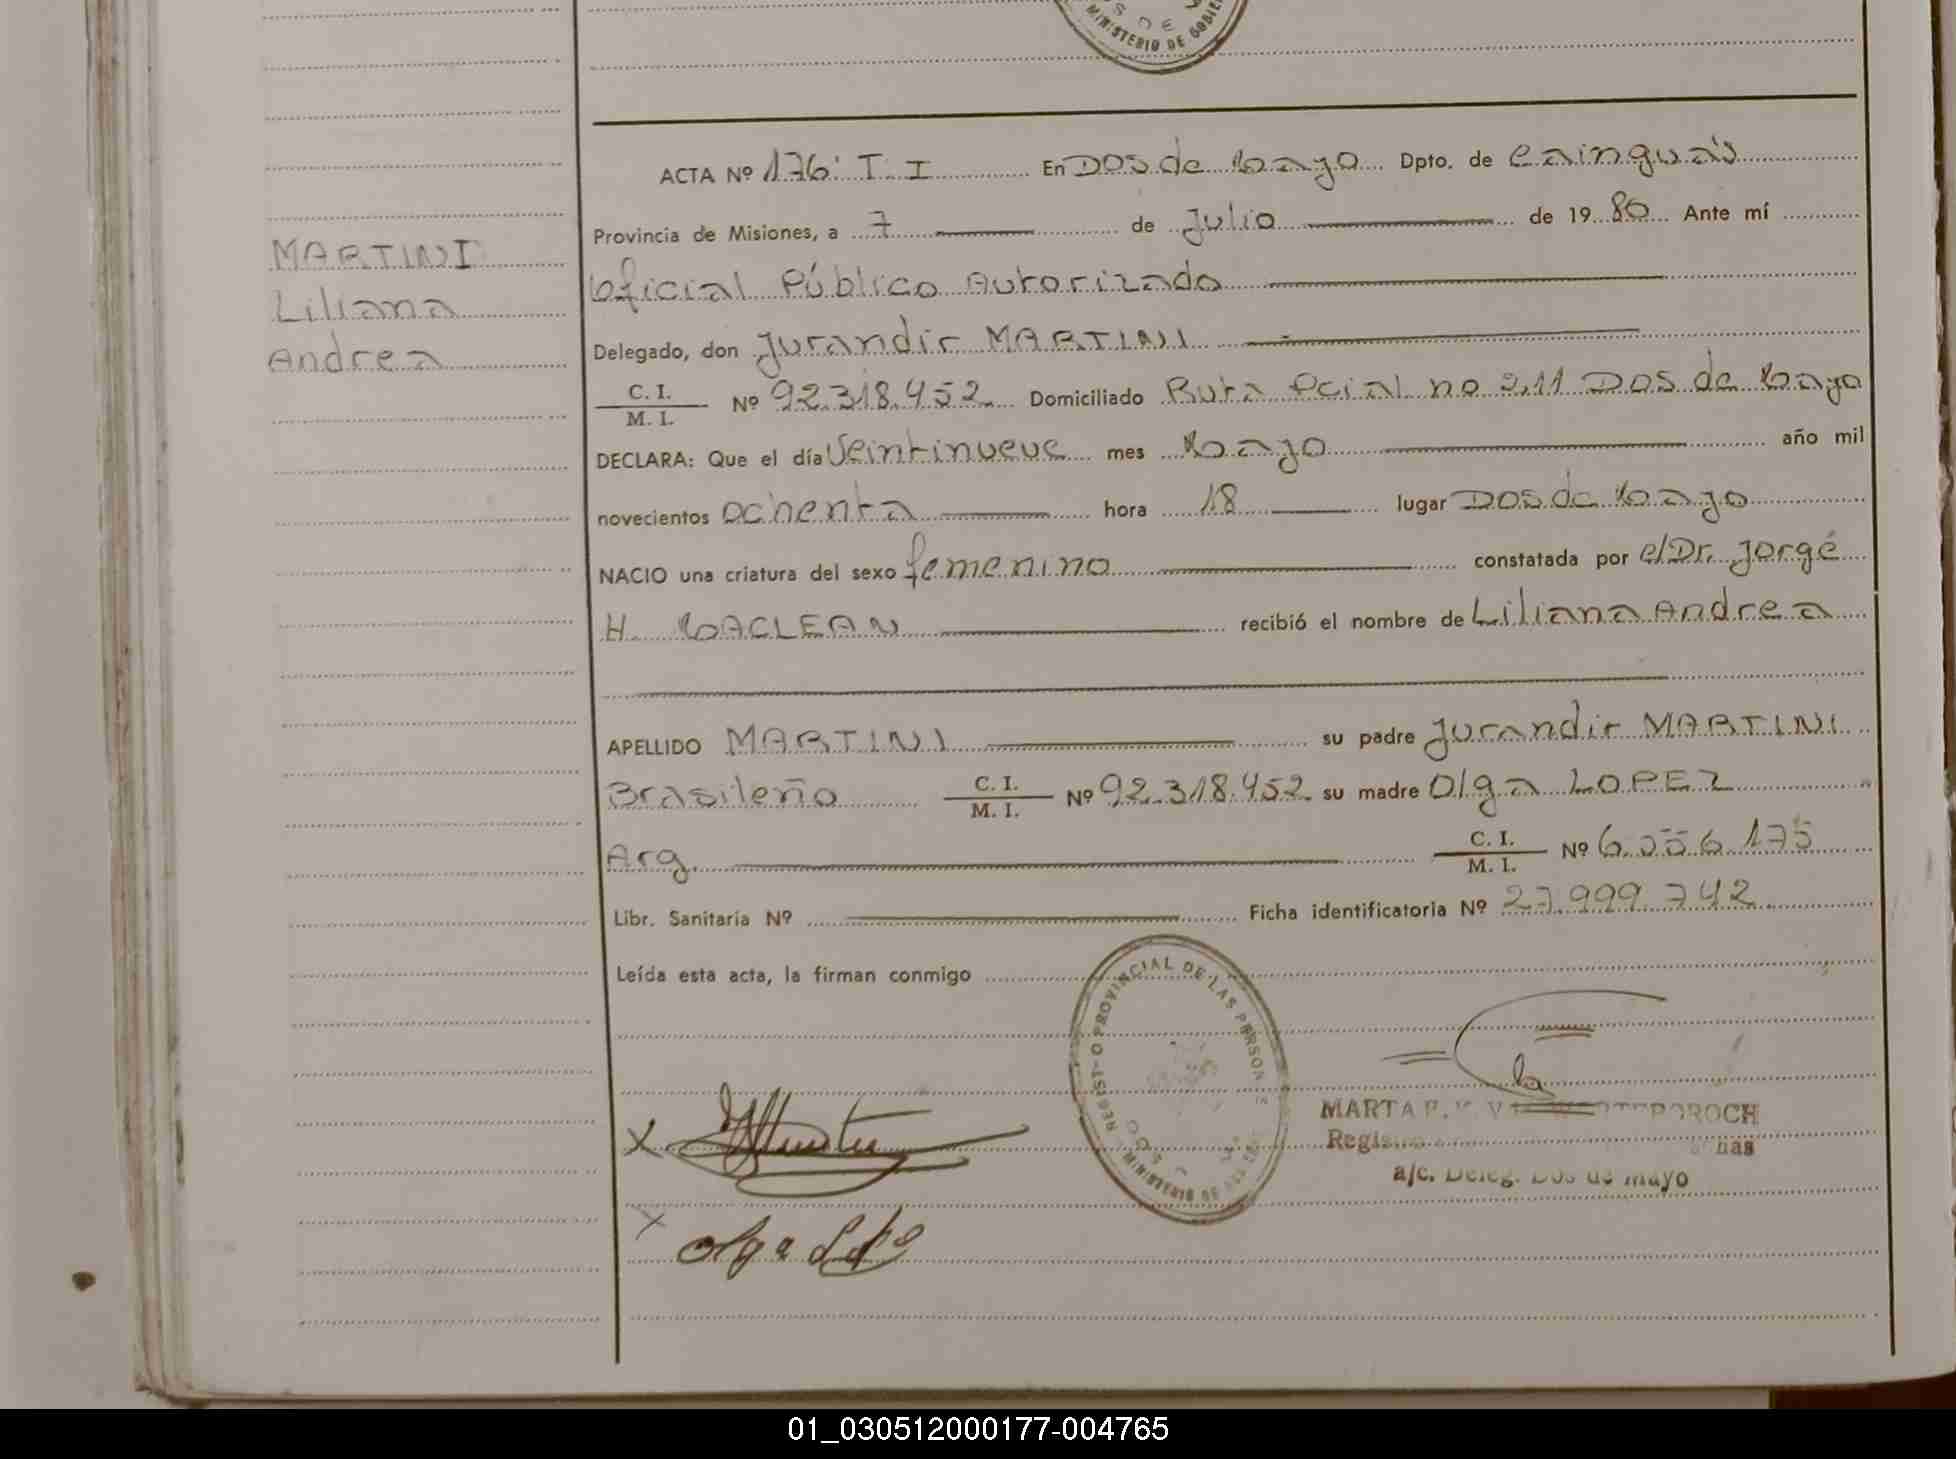 MINISTERIO DE GOBIE
ACTA Nº 176 T. I En Dos de Mayo Dpto. de Cainguás
Provincia de Misiones, a 7 de Julio de 19 80 Ante mí
MARTINI
Liliana
Andrea
Oficial Público Autorizado
Delegado, don Jurandir MARTINI
C. I.
M. I.
Nº 92.318.452 Domiciliado Ruta Pcial no 211 Dos de Mayo
DECLARA: Que el día Veintinueve mes Mayo año mil
novecientos ochenta hora 18 lugar Dos de Mayo
NACIO una criatura del sexo femenino constatada por el Dr. Jorge
H. MACLEAN recibió el nombre de Liliana Andrea
APELLIDO MARTINI su padre Jurandir MARTINI
Brasileño C. I. M. I. Nº 92.318.452 su madre Olga LOPEZ
Arg. C. I. M. I. Nº 6.556.175
Libr. Sanitaria Nº Ficha identificatoria Nº 27.999.742
Leída esta acta, la firman conmigo
PROVINCIAL DE LAS PERSON
MINISTERIO DE
MARTA
a/c. Deleg. Dos de Mayo
Olga
01_030512000177-004765